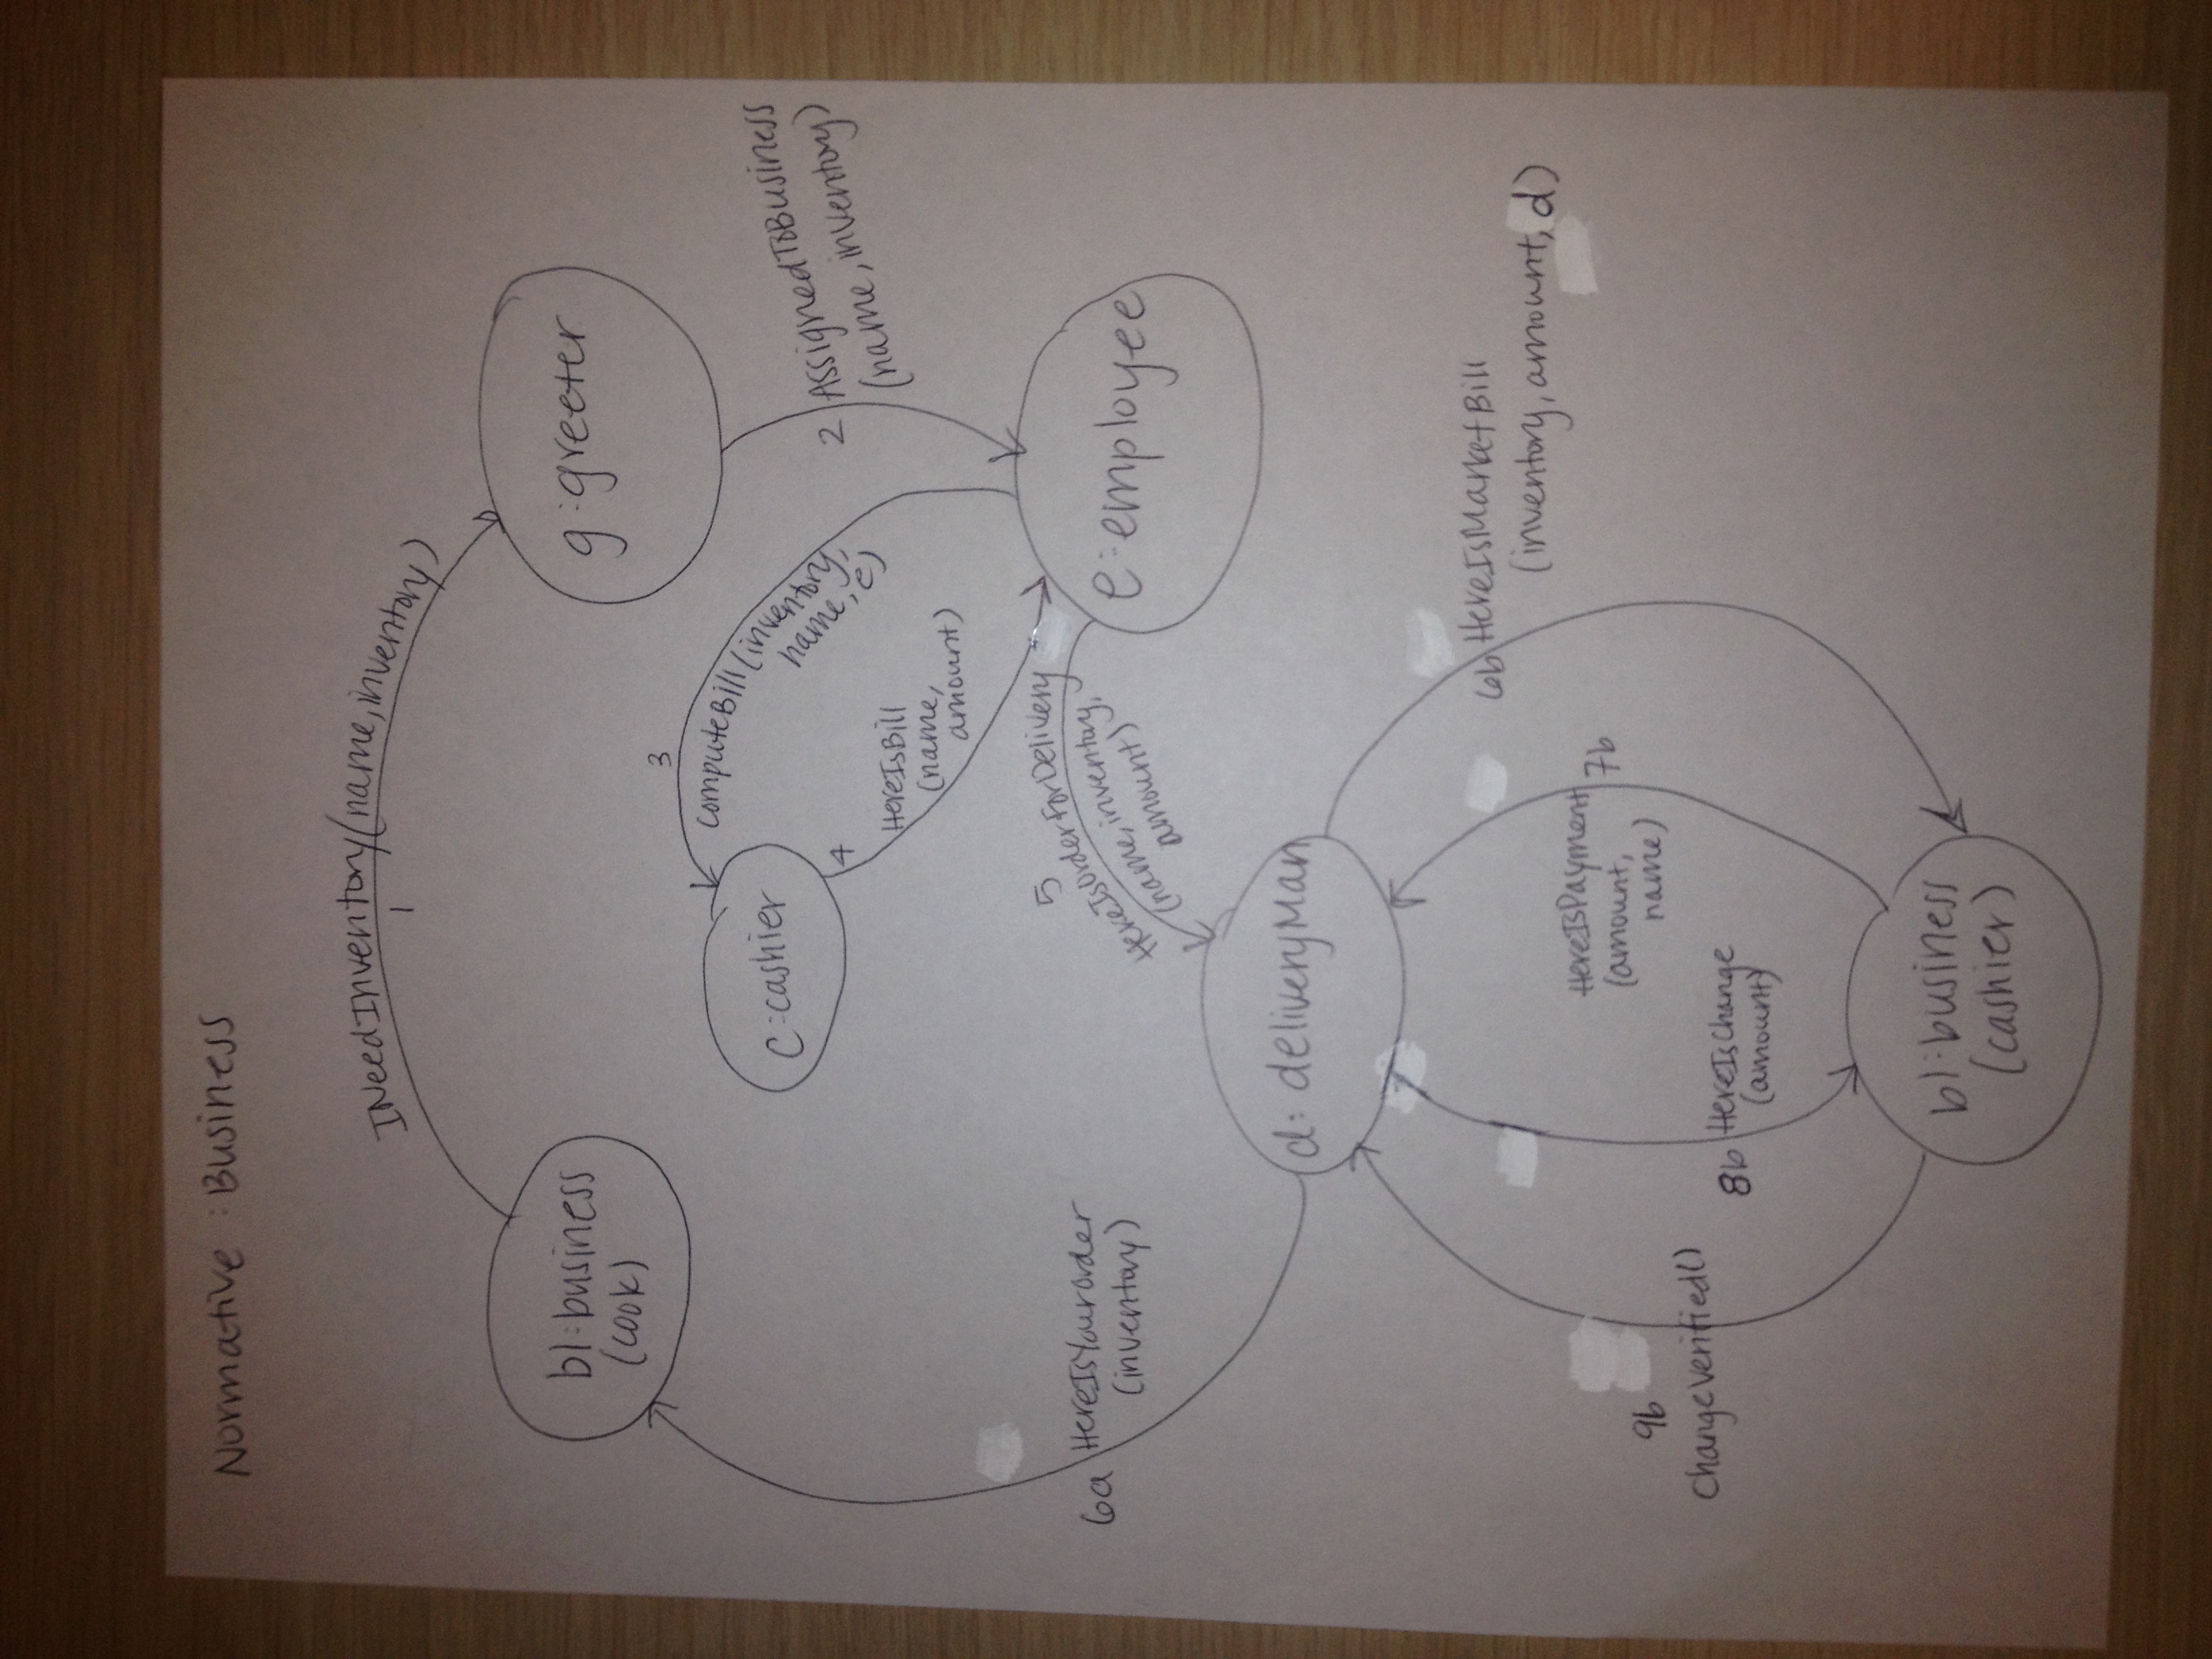 Normative : Business
INeedInventory(name, inventory)
1
b1:business
(cook)
g:greeter
3
computeBill(inventory,
name, e)
c:cashier
2
AssignedToBusiness
(name, inventory)
4
HereIsBill
(name,
amount)
5
HereIsOrderForDelivery
(name, inventory,
amount)
e:employee
6a HereIsYourOrder
(inventory)
d: deliveryMan
6b HereIsMarketBill
(inventory, amount, d)
HereIsPayment
(amount,
name)
7b
9b
ChangeVerified()
8b HereIsChange
(amount)
b1:business
(cashier)